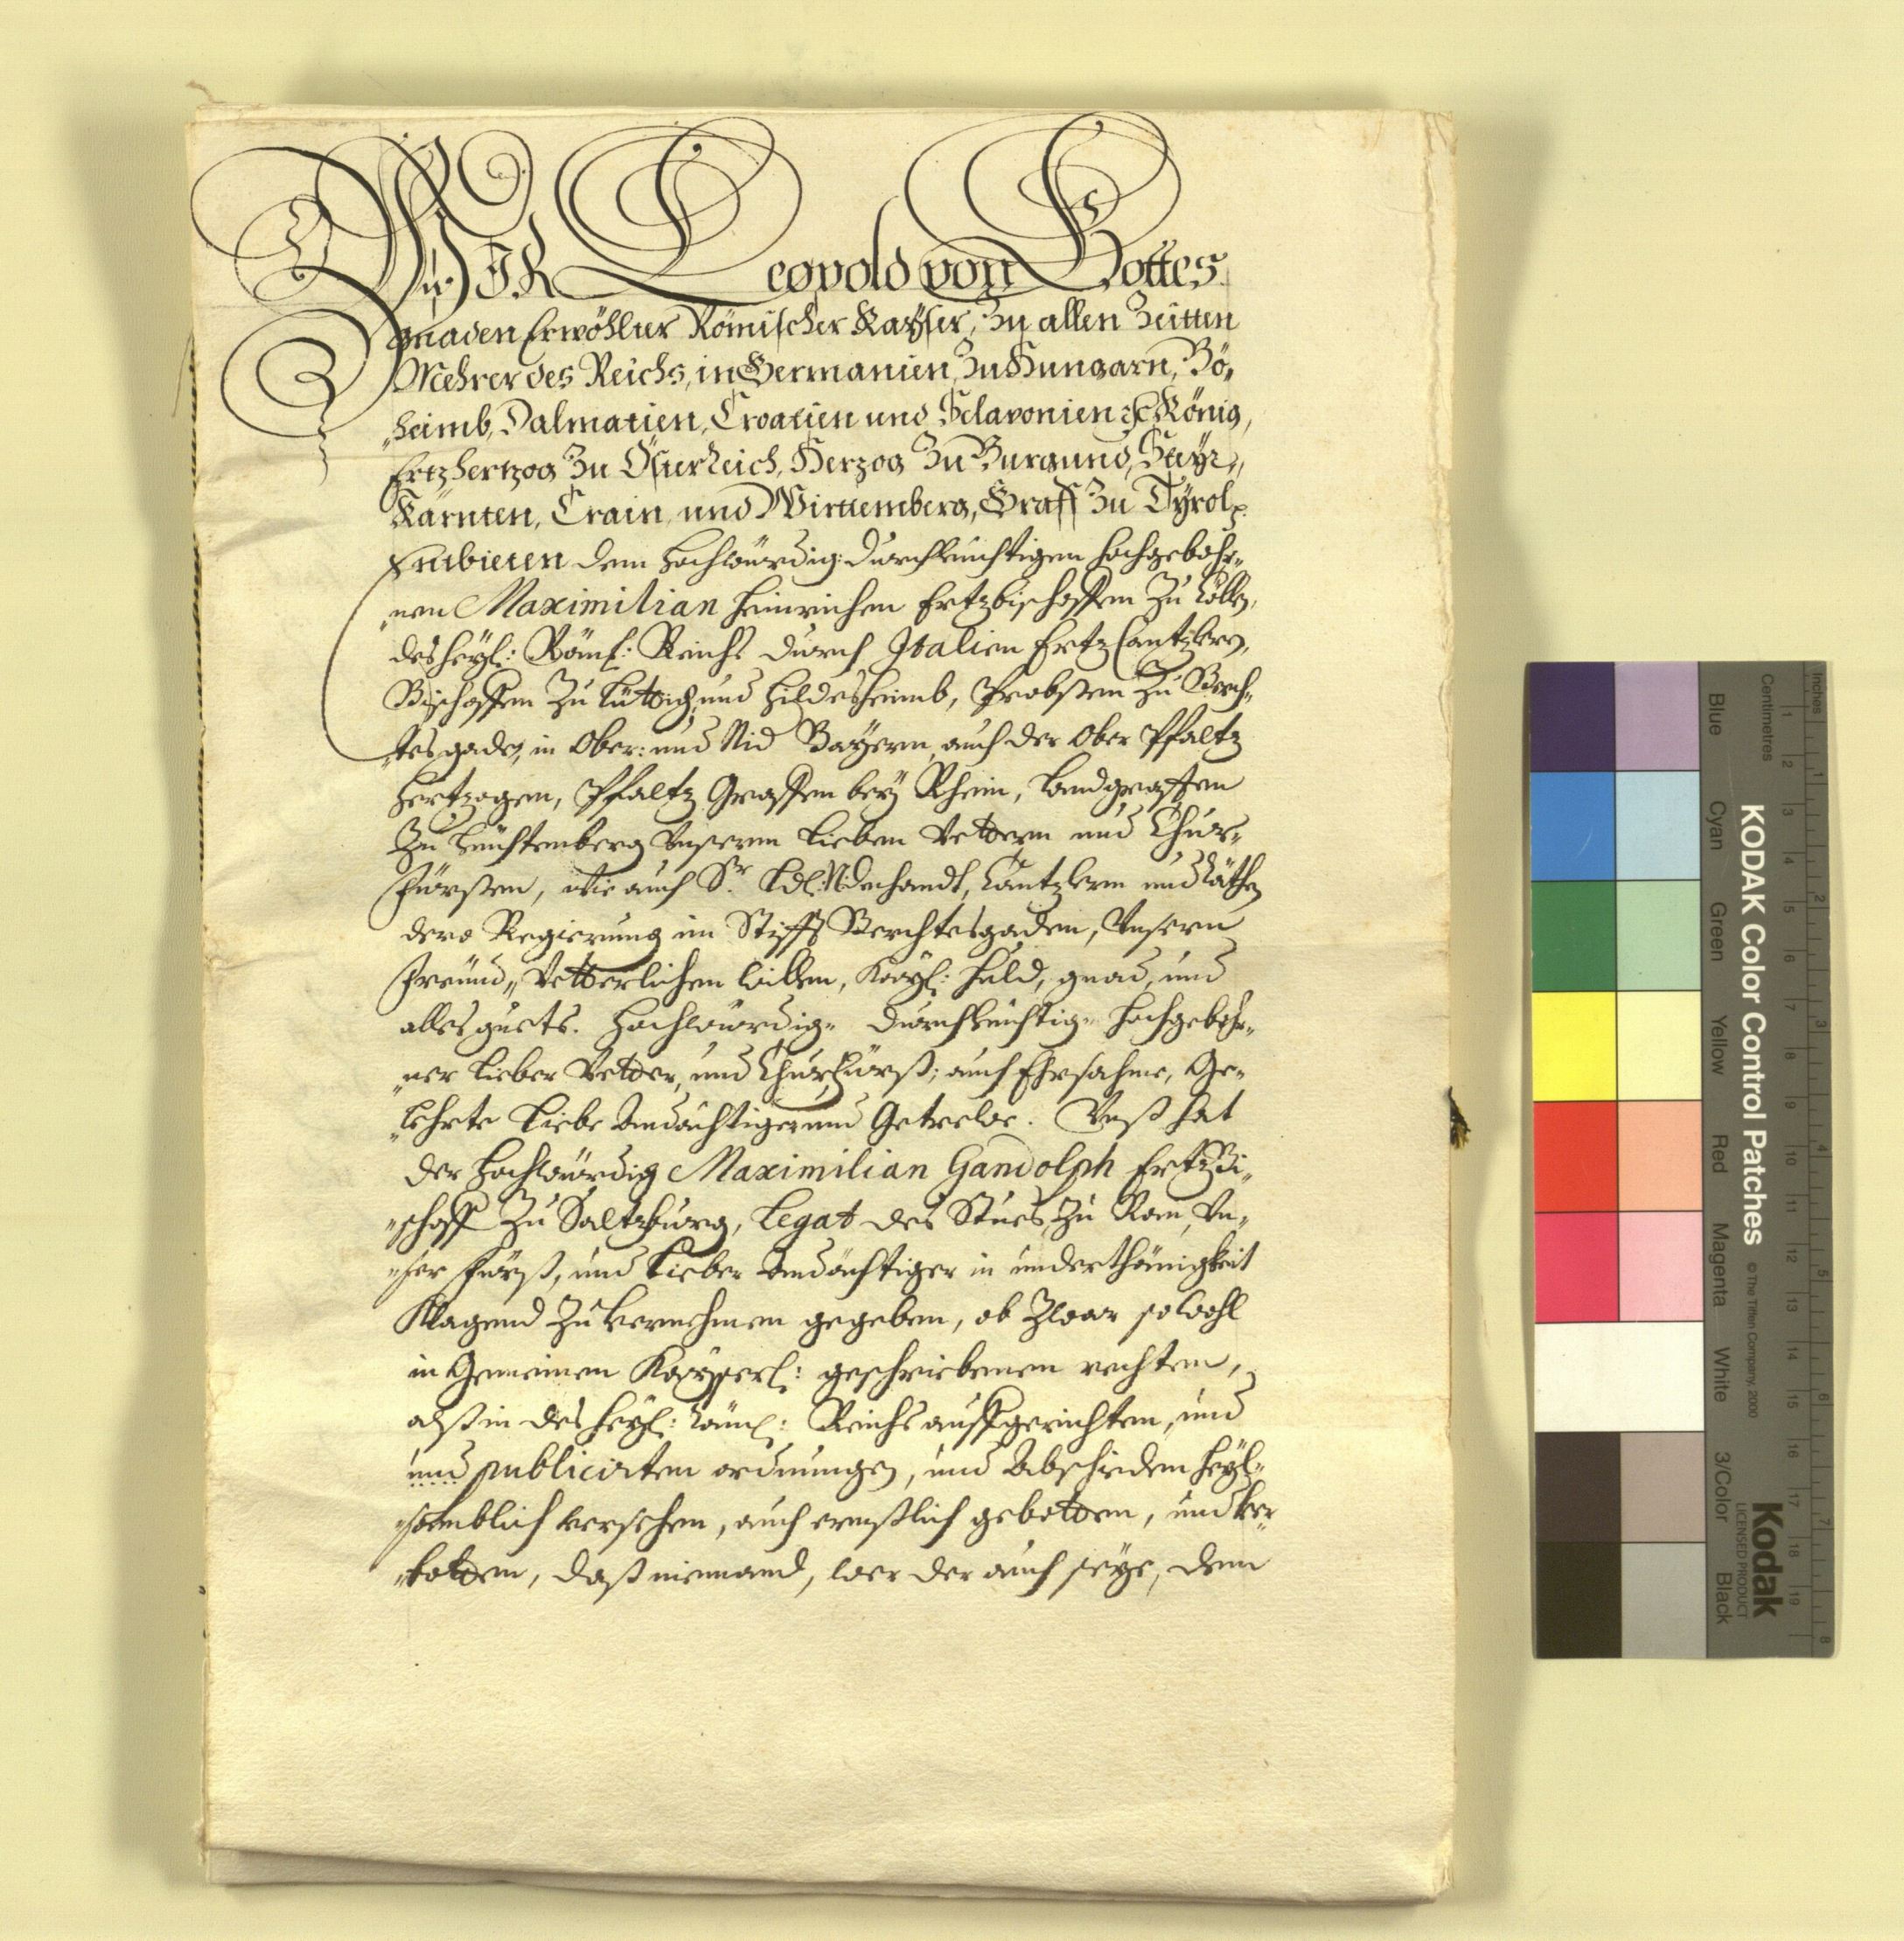 WIR Leopold von Gottes
gnaden Erwöhlter Römischer Kayser, Zu allen Zeitten
Mehrer des Reichs, in Germanien, Zu Hungarn, Bö„
„heimb, Dalmatien, Croatien und Sclavonien ꝛc König,
Ertzhertzog Zu Össterreich, Herzog Zu Burgund, Steyr„
Kärnten, Crain, und Wirttemberg, Graff Zu Tyrol ꝛc.
Entbieten dem Hochwürdig: durchleuchtigen hochgebohr„
„nen Maximilian Heinrichen Ertzbischoffen Zu Cölln,
des heyl: Röml: Reichs durch Italien Ertz Cantzlern,
Bischoffen Zu Lüttich, und Hildesheimb, Probsten Zu Berch„
„tesgaden, in Ober: und Nid Bayern, auch der Ober Pfaltz
Hertzogen, Pfaltz Graffen bey Rhein, Landgraffen
Zu Leuchtenberg Unserem Lieben Vettern und Chur„
fürsten, wie auch Sr. Ld: Cantzlern und Räthen
dero Regierung im Stifft Berchtesgaden, Unsern
freund„ Vetterlichen willen, Kayl: huld, gnad, und
alles guets. Hochwürdig„ durchleuchtig„ Hochgebohr„
„ner Lieber Vetter, und Churfürst; auch Ehrsahme, Ge„
„lehrte Liebe Andächtige und Getrewe. Unß hat
der Hochwürdig Maximilian Gandolph Ertzbi„
„schoff Zu Saltzburg, Legat des Stuels Zu Rom, Un„
„ser Fürst, und Lieber Andächtiger in underthänigkeit
Klagend Zu vernehmen gegeben, ob Zwar sowohl
in Gemeinen Kayserl: geschriebenen rechten,
alß in des heyl: Röml: Reichs auffgerichten, und
und publicirten ordnungen, und Abschieden heyl„
„samblich versehen, auch ernstlich gebotten, und ver„
„botten, daß niemand, wer der auch seye, den
Inches
Centimetres
1 2 3 4 5 6 7 8
1 2 3 4 5 6 7 8 9 10 11 12 13 14 15 16 17 18 19
KODAK Color Control Patches © The Tiffen Company, 2000
Kodak
LICENSED PRODUCT
Blue Cyan Green Yellow Red Magenta White 3/Color Black